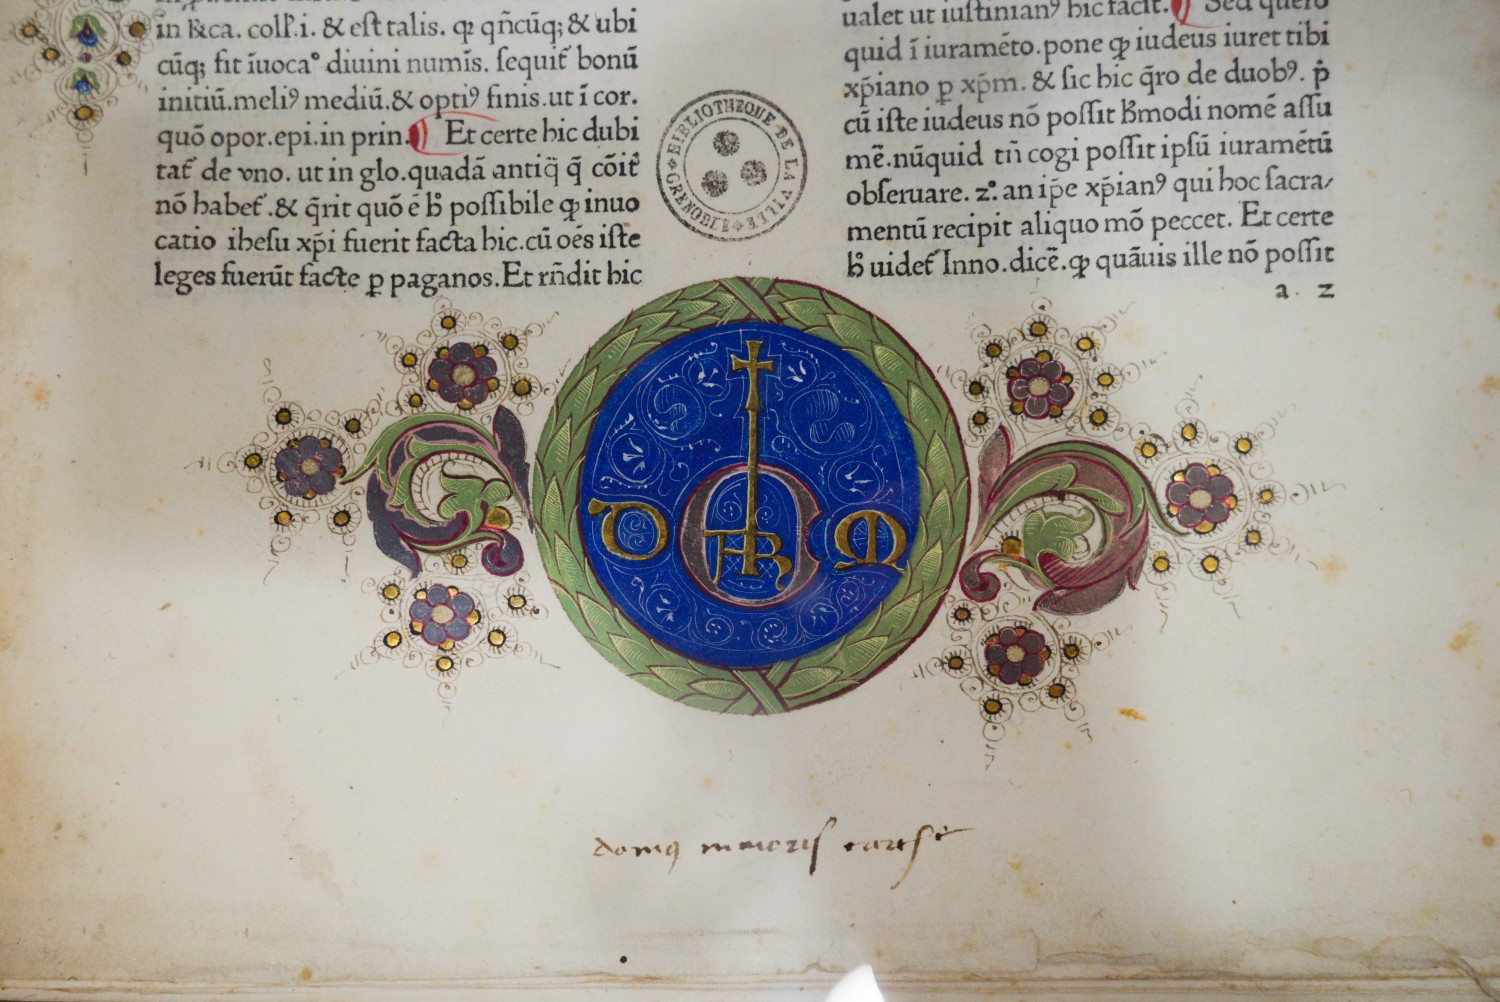 in ł&ca. coll'.i. & est talis. qp qñcūq; & ubi
cūq; fit īuoca° diuini numīs. sequit̄ bonū
initiū.meliꝰ mediū.& optiꝰ finis.ut ī cor.
quō opor.epi.in prin.¶ Et certe hic dubi
tat̄ de vno. ut in glo.quadā antiq̄ q̄ cōit̄
nō habet̄.& q̄rit quō ē ħ possibile ꝙ inuo
catio ihesu xp̄i fuerit facta hic.cū oēs iste
leges fuerūt facte ꝑ paganos.Et rñdit hic
ualet ut iustinianꝰ hic facit.¶ Sed quero
quid ī iuramēto.pone ꝙ iudeus iuret tibi
xp̄iano ꝑ xp̄m. & sic hic q̄ro de duobꝰ. ṗ
cū iste iudeus nō possit hm̄odi nomē assu
mē.nūquid tñ cogi possit ipsū iuramētū
obseruare. z°. an ip̄e xp̄ianꝰ qui hoc sacra/
mentū recipit aliquo mō peccet. Et certe
ħ uidet̄ Inno.dicē.ꝙ quāuis ille nō possit
a. z
BIBLIOTHEQUE DE LA VILLE GRENOBLE
D O M
domꝰ maioris carts̄